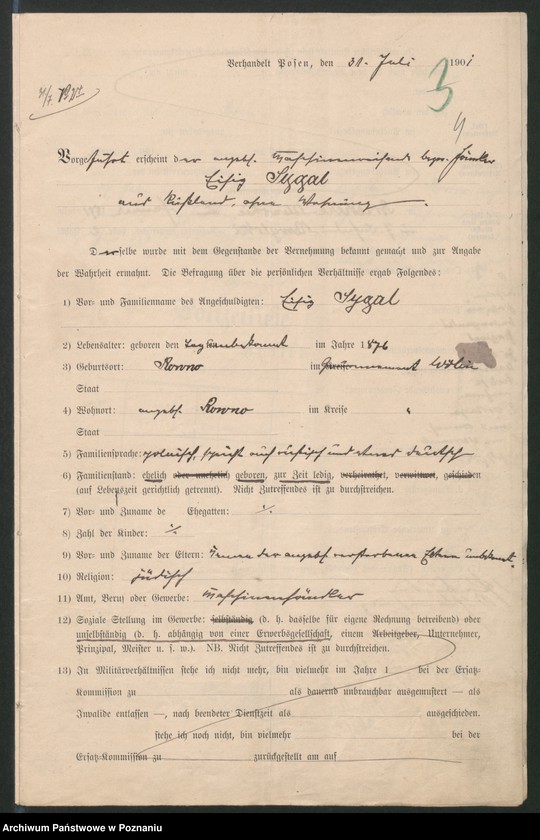 Verhandelt Posen, den 31. Juli 1901
3
4
Vorgeführt erscheint der angebl. Maschinenreisende bezw. Händler
Eisig Sygal
aus Rußland, ohne Wohnung.
Derselbe wurde mit dem Gegenstande der Vernehmung bekannt gemacht und zur Angabe
der Wahrheit ermahnt. Die Befragung über die persönlichen Verhältnisse ergab Folgendes:
1) Vor- und Familienname des Angeschuldigten: Eisig Sygal
2) Lebensalter: geboren den Tag unbekannt im Jahre 1876
3) Geburtsort: Rowno im Gouvernement
Staat
4) Wohnort: angebl. Rowno im Kreise "
Staat
5) Familiensprache: polnisch, spricht auch russisch und etwas deutsch
6) Familienstand: ehelich oder unehelich geboren, zur Zeit ledig, verheirathet, verwittwet, geschieden
(auf Lebenszeit gerichtlich getrennt). Nicht Zutreffendes ist zu durchstreichen.
7) Vor- und Zuname de Ehegatten: ./.
8) Zahl der Kinder: ./.
9) Vor- und Zuname der Eltern: Namen der angebl. verstorbenen Eltern unbekannt.
10) Religion: jüdisch
11) Amt, Beruf oder Gewerbe: Maschinenhändler
12) Soziale Stellung im Gewerbe: selbständig (d. h. dasselbe für eigene Rechnung betreibend) oder
unselbständig (d. h. abhängig von einer Erwerbsgesellschaft, einem Arbeitgeber, Unternehmer,
Prinzipal, Meister u. s. w.). NB. Nicht Zutreffendes ist zu durchstreichen.
13) In Militärverhältnissen stehe ich nicht mehr, bin vielmehr im Jahre 1 bei der Ersatz-
Kommission zu als dauernd unbrauchbar ausgemustert — als
Invalide entlassen —, nach beendeter Dienstzeit als ausgeschieden.
stehe ich noch nicht, bin vielmehr bei der
Ersatz-Kommission zu zurückgestellt am auf
Archiwum Państwowe w Poznaniu